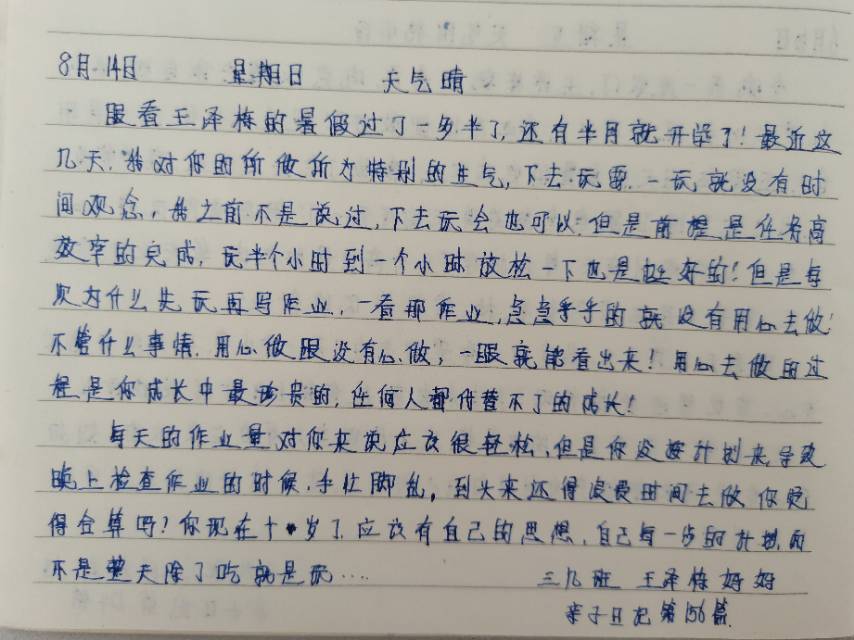 8月14日 星期日 天气晴
眼看王泽栋的暑假过了一多半了,还有半月就开学了!最近这
几天,我对你的所做所为特别的生气,下去玩耍,一玩就没有时
间观念,我之前不是说过,下去玩会也可以,但是前提是任务高
效率的完成,玩半个小时到一个小时放松一下也是挺好的!但是每
次为什么先玩再写作业,一看那作业,急急乎乎的就没有用心去做!
不管什么事情,用心做跟没有心做,一眼就能看出来!用心去做的过
程是你成长中最珍贵的,任何人都代替不了的成长!
每天的作业量对你来说应该很轻松,但是你没按计划来,导致
晚上检查作业的时候,手忙脚乱,到头来还得浪费时间去做,你觉
得合算吗?你现在十岁了,应该有自己的思想,自己每一步的计划,而
不是整天除了吃就是玩....
三几班 王泽栋妈妈
亲子日记第156篇